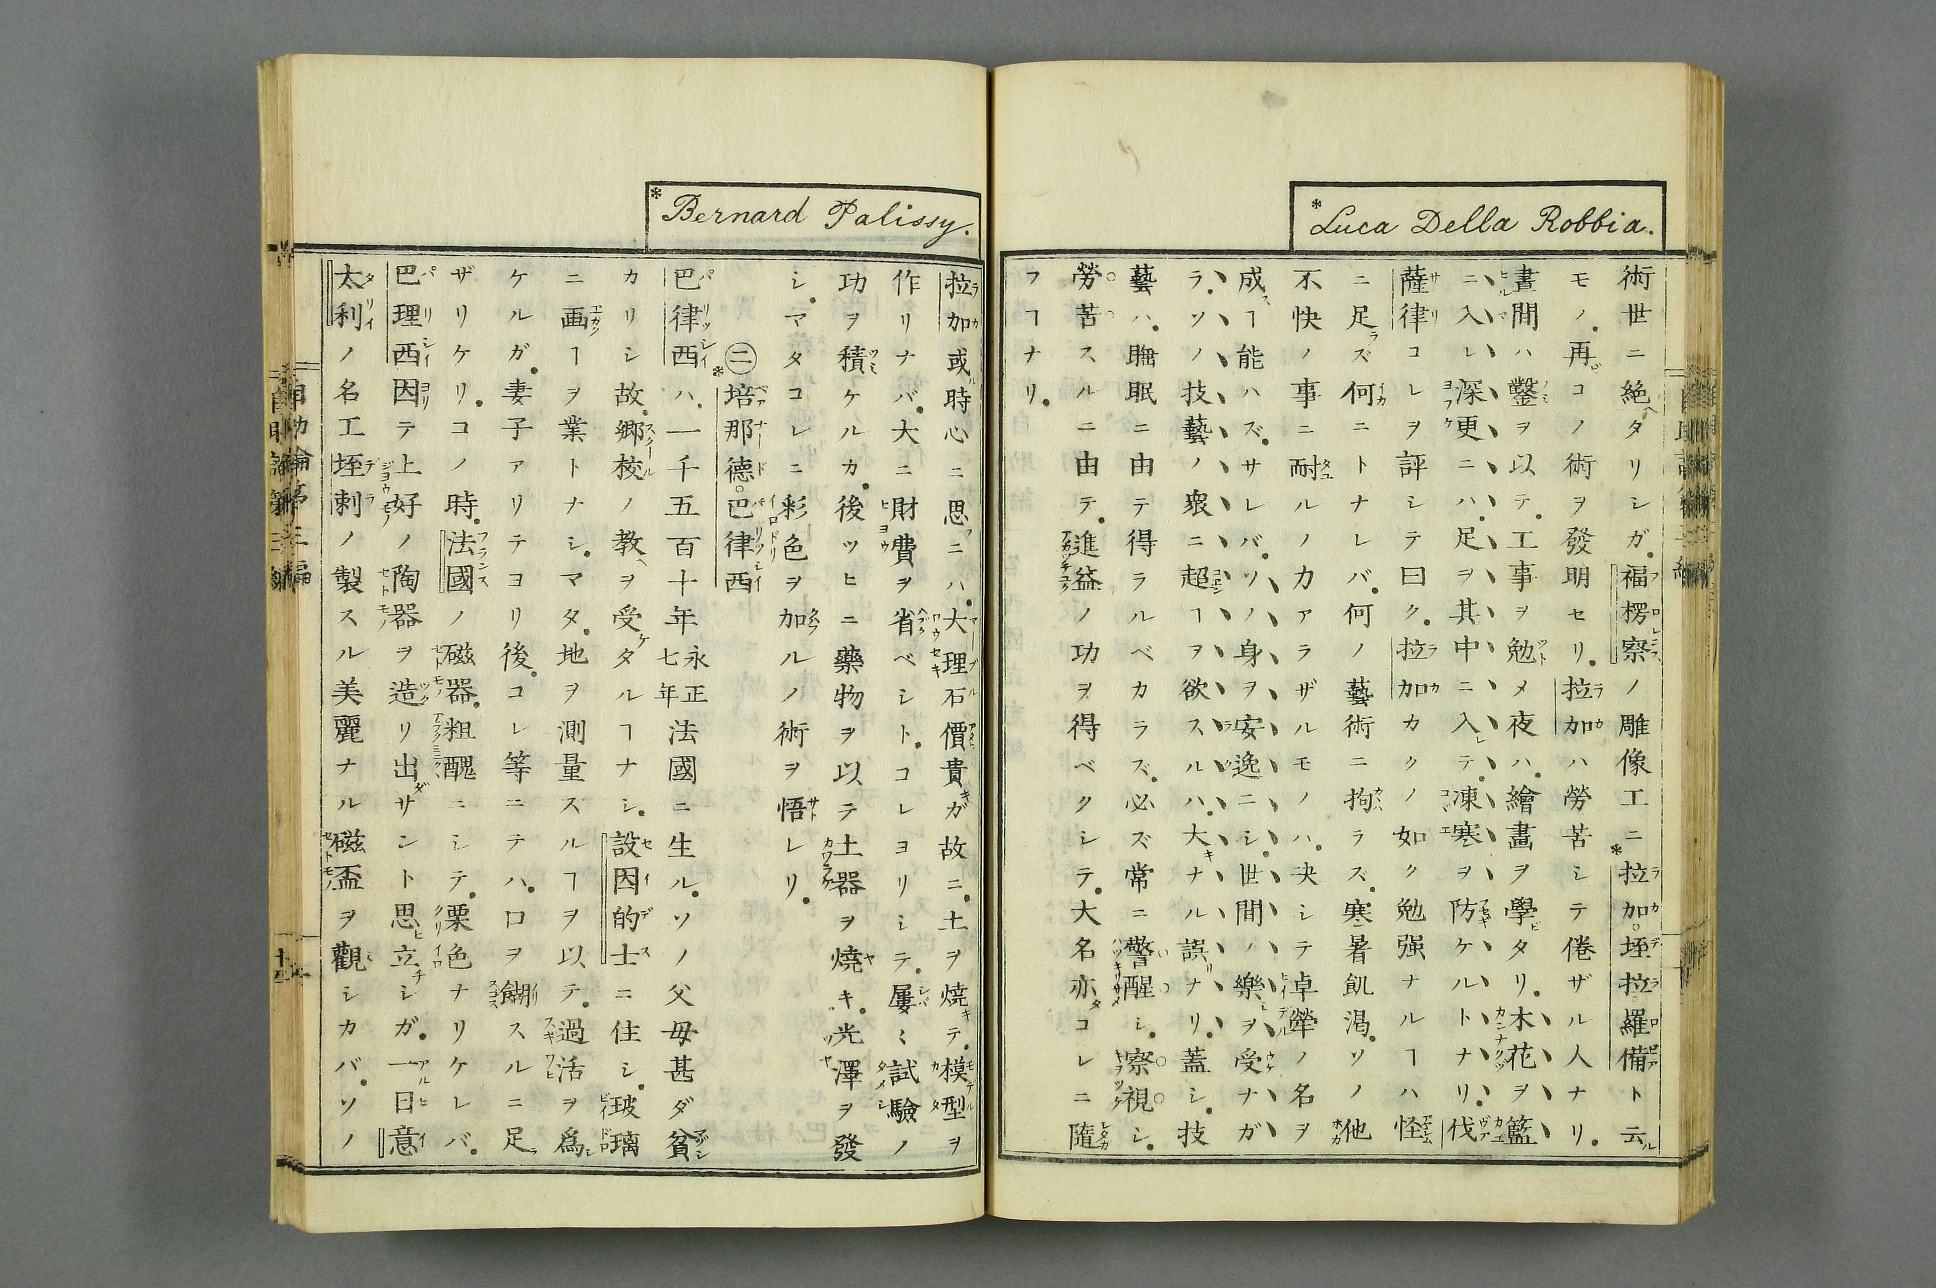 *Luca Della Robbia.
術世ニ絶ヘタリシガ。福楞察ノ雕像工ニ*拉加。垤拉羅備ト云ル
モノ。再ビコノ術ヲ發明セリ。拉加ハ勞苦シテ倦ザル人ナリ。
晝間ハ鑿ヲ以テ。工事ヲ勉メ夜ハ。繪畫ヲ學ビタリ。木花ヲ籃
ニ入レ深更ニハ。足ヲ其中ニ入レテ。凍寒ヲ防ケルトナリ。伐
薩律コレヲ評シテ曰ク。拉加カクノ如ク勉强ナルヿハ怪
ニ足ラズ何ニトナレバ。何ノ藝術ニ拘ラズ。寒暑飢渴。ソノ他
不快ノ事ニ耐ルノ力アラザルモノハ。决シテ卓犖ノ名ヲ
成スヿ能ハズ。サレバ。ソノ身ヲ安逸ニシ。世間ノ樂ヲ受ナガ
ラ。ソノ技藝ノ衆ニ超ヿヲ欲スルハ。大ナル誤リナリ。蓋シ。技
藝ハ。睡眠ニ由テ得ラルベカラズ。必ズ常ニ警醒シ。察視シ。
勞苦スルニ由テ。進益ノ功ヲ得ベクシテ。大名亦タコレニ隨
フヿナリ。
*Bernard Palissy.
拉加或ル時心ニ思フニハ。大理石價貴キガ故ニ。土ヲ燒キテ。模型ヲ
作リナバ。大ニ財費ヲ省ベシト。コレヨリシテ。屢〻試驗ノ
功ヲ積ケルカ。後ツヒニ藥物ヲ以テ土器ヲ燒キ。光澤ヲ發
シ。マタコレニ彩色ヲ加ルノ術ヲ悟レリ。
㊁*培那德。巴律西
巴律西ハ。一千五百十年永正七年法國ニ生ル。ソノ父母甚ダ貧
カリシ故。鄉校ノ教ヘヲ受ケタルヿナシ。設因的士ニ住シ。玻璃
ニ画ヿヲ業トナシ。マタ。地ヲ測量スルヿヲ以テ。過活ヲ爲
ケルガ。妻子アリテヨリ後。コレ等ニテハ。口ヲ餬スルニ足ラ
ザリケリ。コノ時。法國ノ磁器。粗醜ニシテ。栗色ナリケレバ。
巴理西因テ上好ノ陶器ヲ造リ出ダサント思ヒ立チシガ。一日意
太利ノ名工垤剌ノ製スル美麗ナル磁盃ヲ觀シカバ。ソノ
自助論第三編